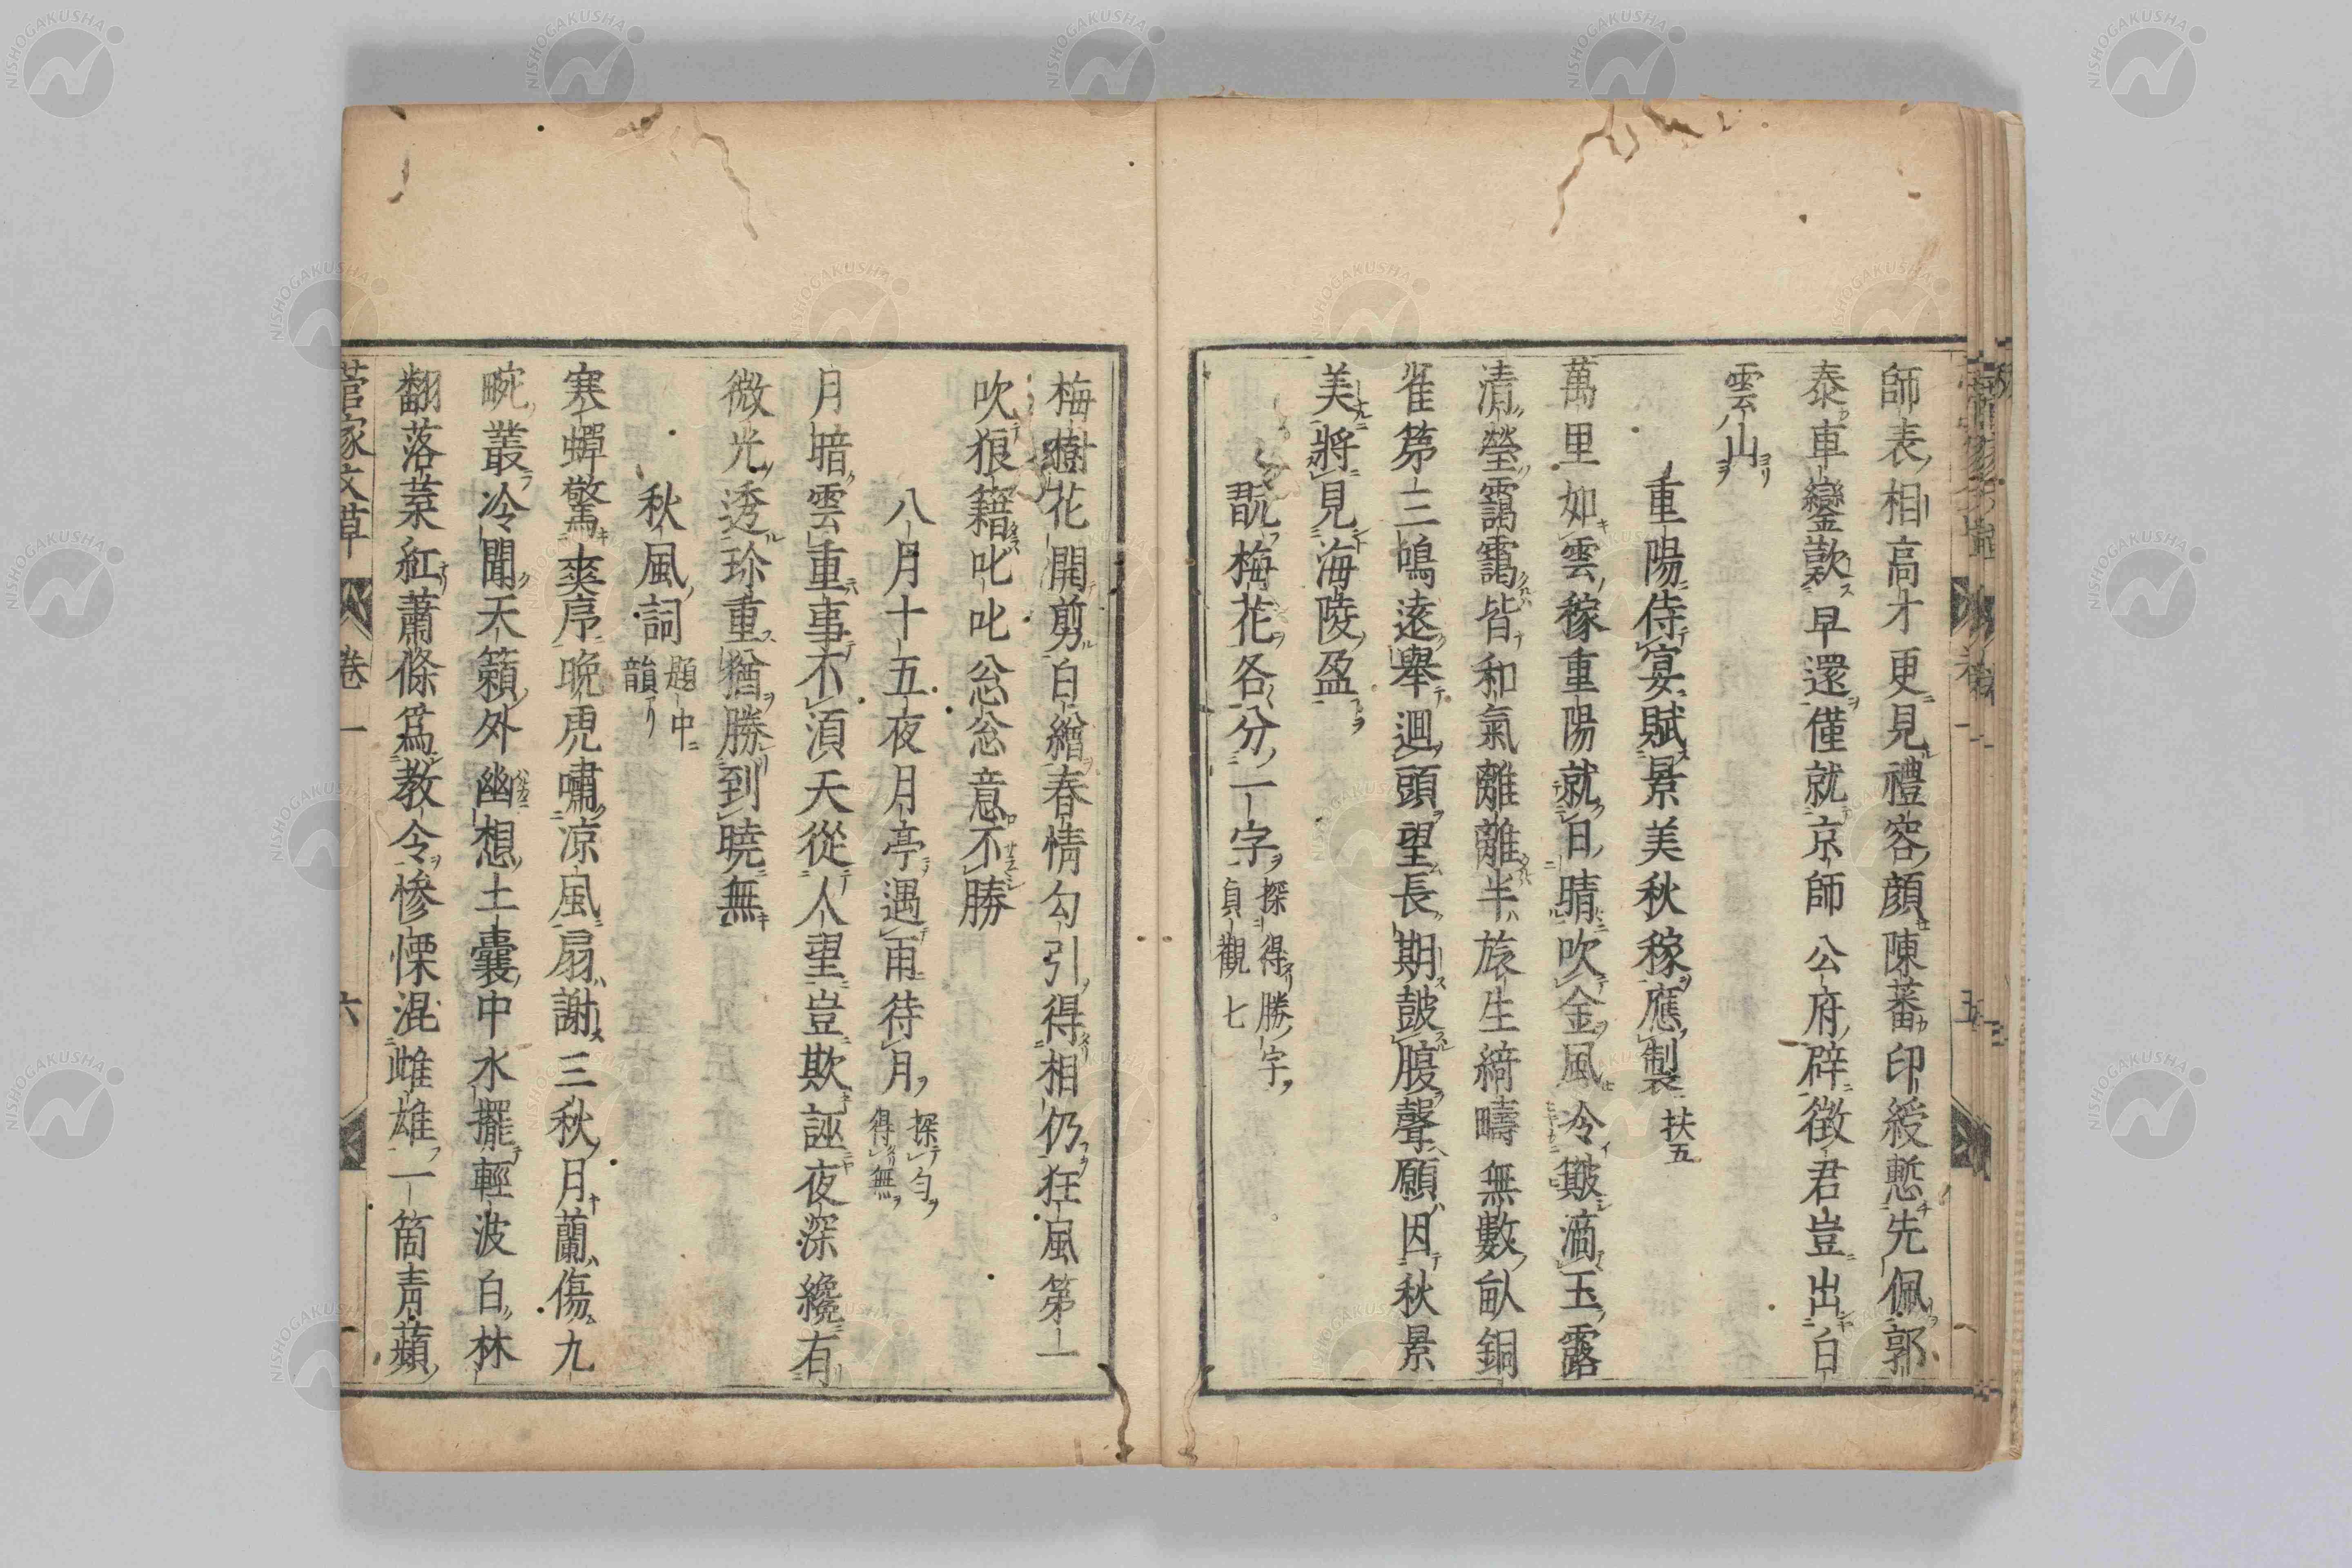 師表相高才更見禮容顔陳蕃印綬慙先佩郭
泰車鑾歎早還僅就京師公府辟徴君豈出白
雲山
重陽侍宴賦景美秋稼應製 扶五
萬里如雲稼重陽就日晴吹金風冷皦滴玉露
清瑩靄靄皆和氣離離半旅生綺疇無數畝銅
雀第三鳴遠舉迴頭望長期皷腹聲願因秋景
美將見海陵盈
翫梅花各分一字 探得勝字
貞觀七
梅樹花開剪白繒春情勾引得相仍狂風第一
吹狼籍叱叱忩忩意不勝
八月十五夜月亭遇雨待月 探勻
得無
月暗雲重事不湏天從人望豈欺誣夜深纔有
微光透珎重猶勝到曉無
秋風詞 題中
韻
寒蟬驚爽序晩虎嘯凉風扇謝三秋月蘭傷九
畹叢冷聞天籟外幽想土囊中水擺輕波白林
翻落葉紅蕭條爲教令慘慄混雌雄一箇青蘋
菅家文草 卷一 六
NISHOGAKUSHA